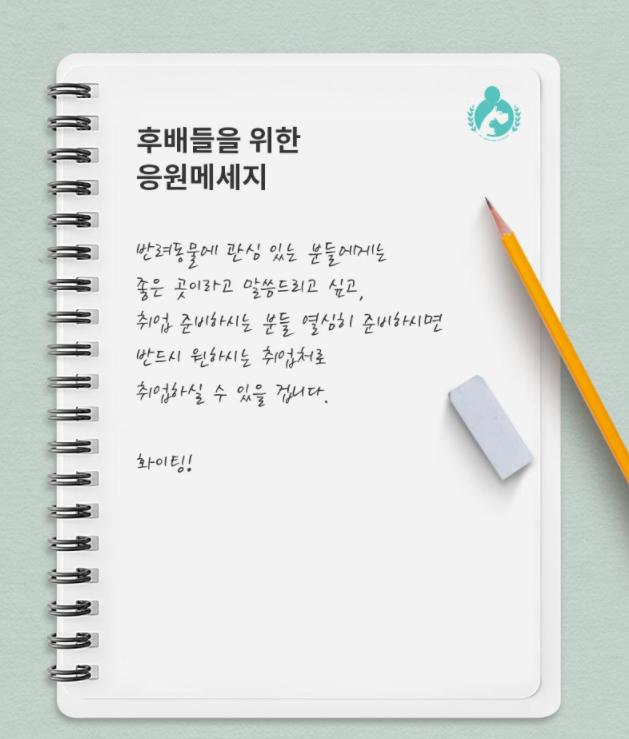 후배들을 위한
응원메세지
반려동물에 관심 있는 분들에게는
좋은 곳이라고 말씀드리고 싶고,
취업 준비하시는 분들 열심히 준비하시면
반드시 원하시는 취업처로
취업하실 수 있을 겁니다.
화이팅!